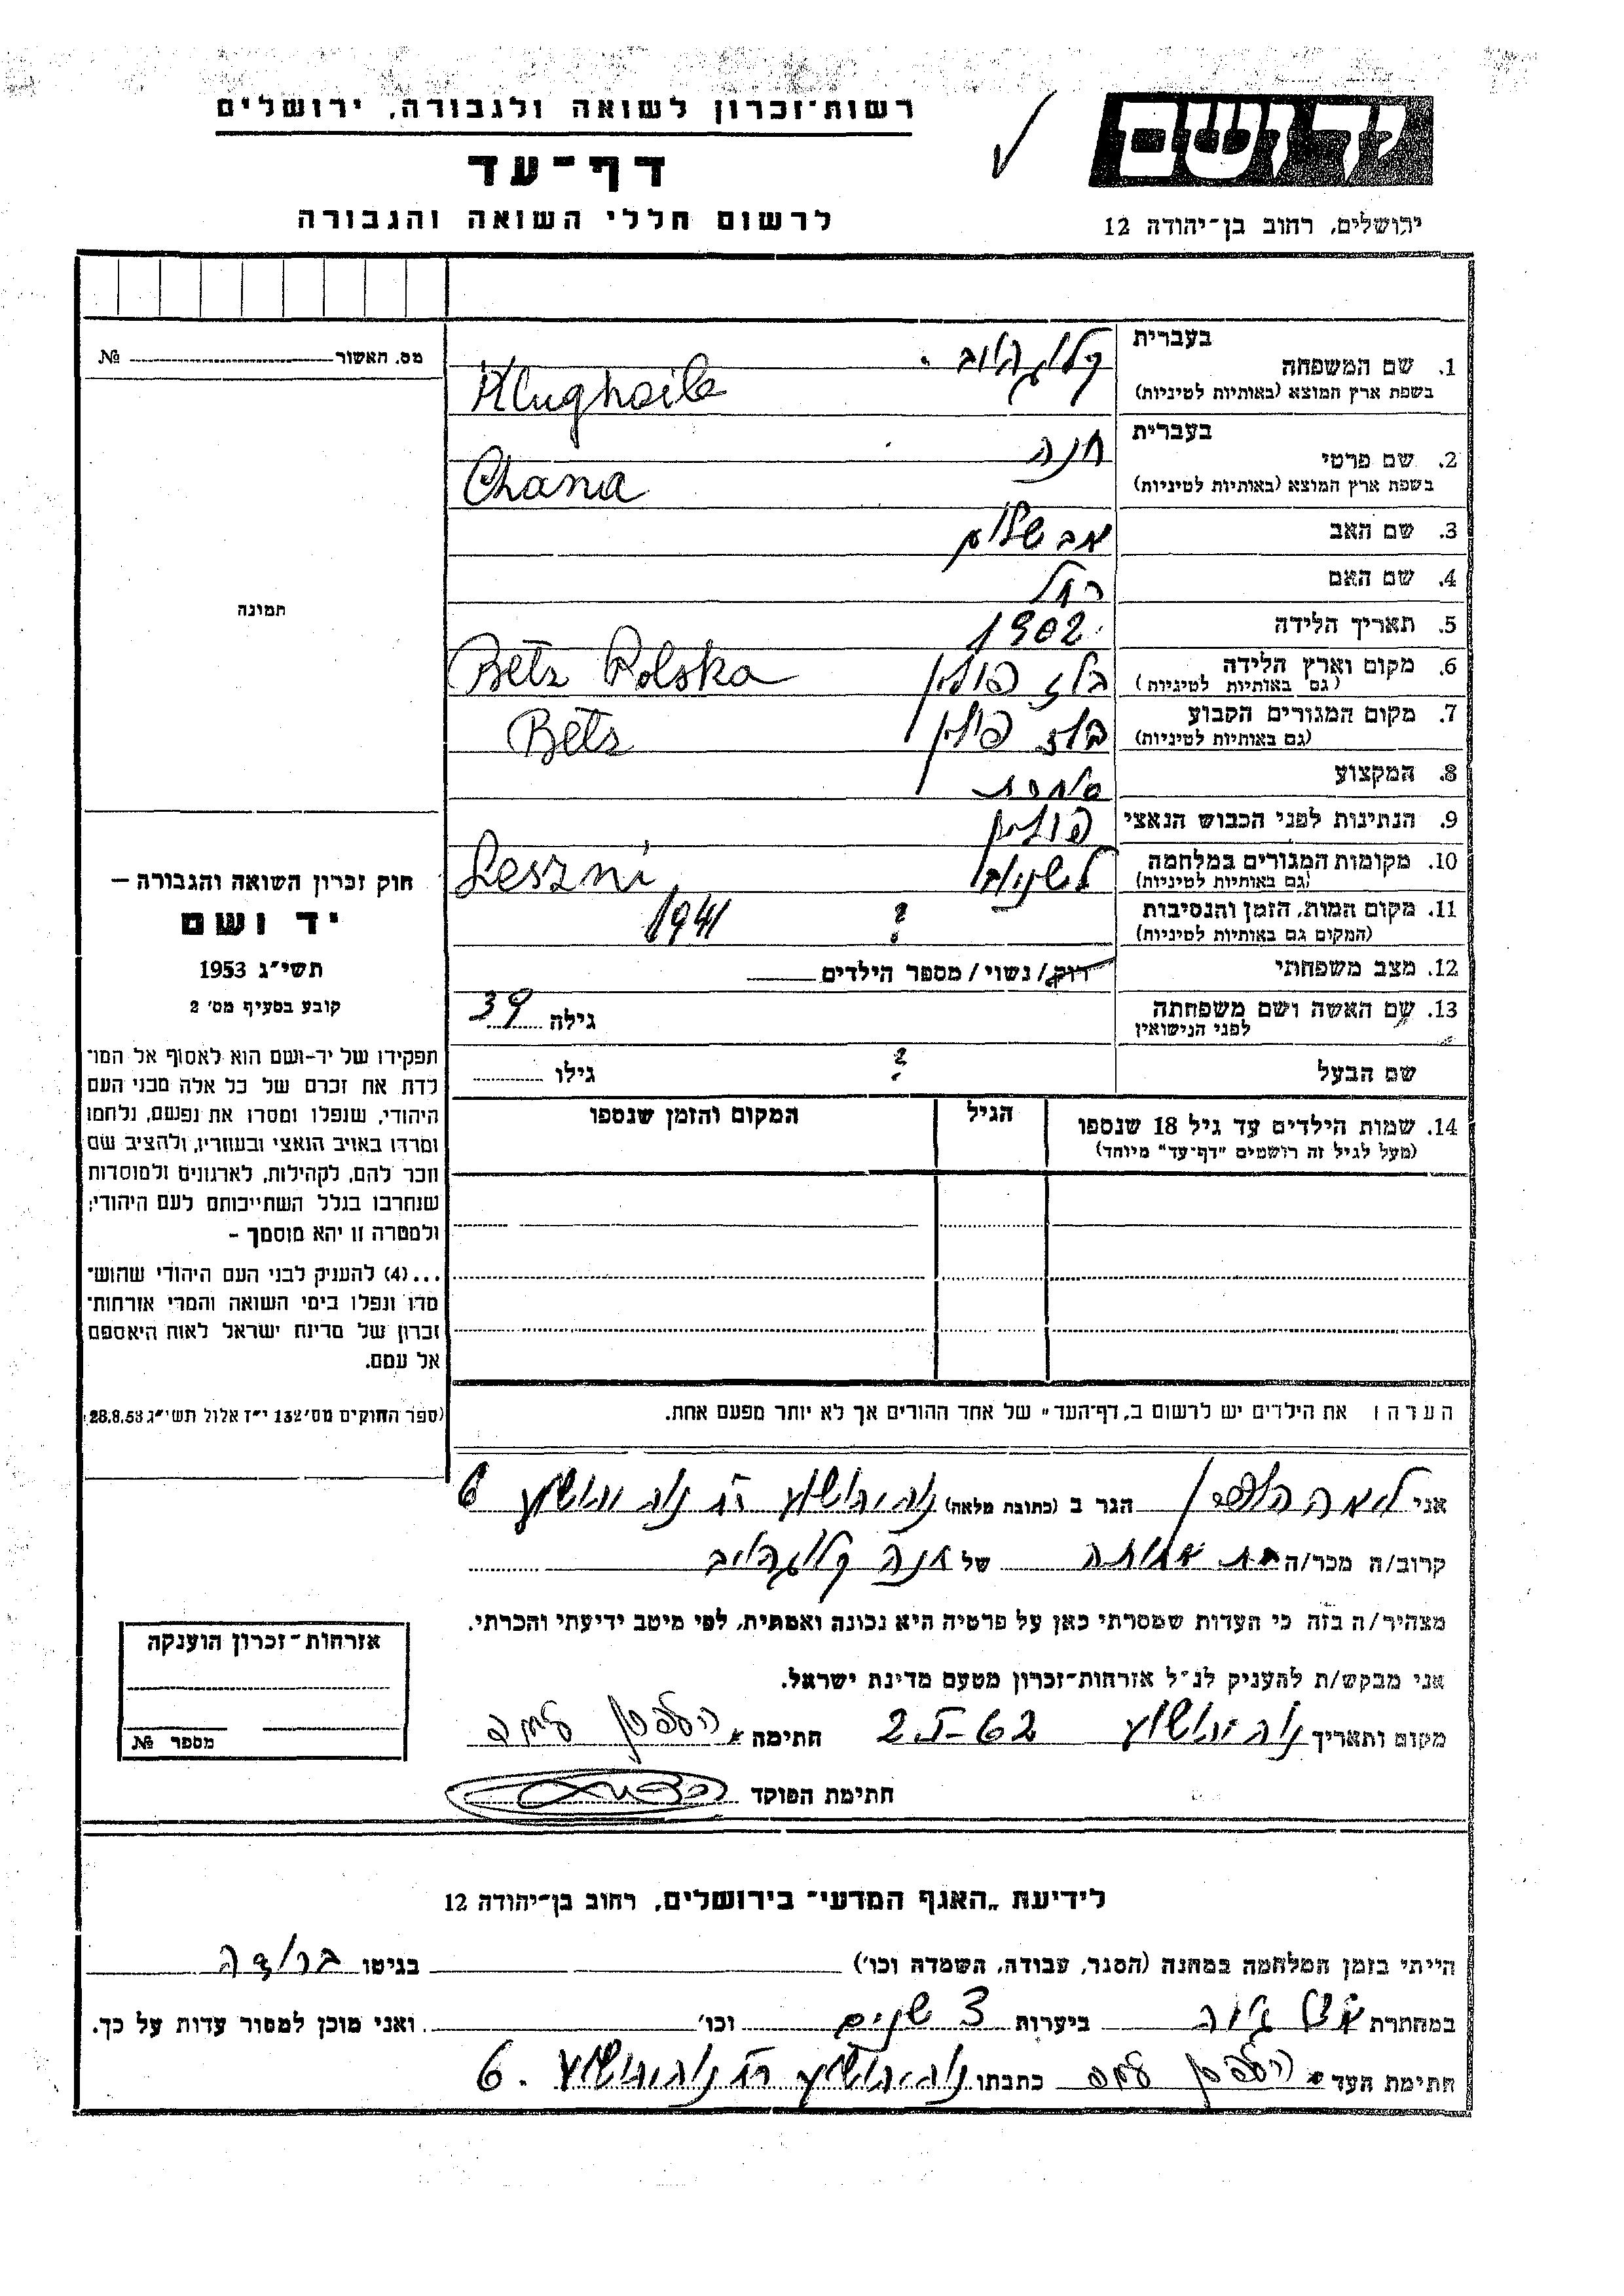 רשות־זכרון לשואה ולגבורה, ירושלים
דף־עד
לרשום חללי השואה והגבורה
יד ושם
ירושלים, רחוב בן־יהודה 12
בעברית
1. שם המשפחה
בשפת ארץ המוצא (באותיות לטיניות)
Klughaile
בעברית
2. שם פרטי חנה
בשפת ארץ המוצא (באותיות לטיניות) Chana
3. שם האב אבשלום
4. שם האם רחל
5. תאריך הלידה 1902
6. מקום וארץ הלידה בלז פולין Bełz Polska
(גם באותיות לטיניות)
7. מקום המגורים הקבוע בלז פולין Bełz
(גם באותיות לטיניות)
8. המקצוע
9. הנתינות לפני הכבוש הנאצי
10. מקומות המגורים במלחמה
(גם באותיות לטיניות)
11. מקום המות, הזמן והנסיבות ? 1941
(המקום גם באותיות לטיניות)
12. מצב משפחתי רווק / נשוי / מספר הילדים
13. שם האשה ושם משפחתה גילה 39
לפני הנישואין
שם הבעל ? גילו
14. שמות הילדים עד גיל 18 שנספו הגיל המקום והזמן שנספו
(מעל לגיל זה רושמים "דף־עד" מיוחד)
מס. האשור №
תמונה
חוק זכרון השואה והגבורה –
יד ושם
תשי"ג 1953
קובע בסעיף מס' 2
תפקידו של יד-ושם הוא לאסוף אל המו־
לדת את זכרם של כל אלה מבני העם
היהודי, שנפלו ומסרו את נפשם, נלחמו
ומרדו באויב הנאצי ובעוזריו, ולהציב שם
וזכר להם, לקהילות, לארגונים ולמוסדות
שנחרבו בגלל השתייכותם לעם היהודי;
ולמטרה זו יהא מוסמך –
...(4) להעניק לבני העם היהודי שהוש־
מדו ונפלו בימי השואה והמרי אזרחות־
זכרון של מדינת ישראל לאות היאספם
אל עמם.
(ספר החוקים מס' 132 י"ז אלול תשי"ג 28.8.53)
הערה: את הילדים יש לרשום ב„דף־העד" של אחד ההורים אך לא יותר מפעם אחת.
אני הגר ב (כתובת מלאה) 6
קרוב/ה מכר/ה של חנה
מצהיר/ה בזה כי העדות שמסרתי כאן על פרטיה היא נכונה ואמתית, לפי מיטב ידיעתי והכרתי.
אני מבקש/ת להעניק לנ"ל אזרחות־זכרון מטעם מדינת ישראל.
מקום ותאריך 2-I-62 חתימה
חתימת הפוקד
אזרחות־זכרון הוענקה
מספר №
לידיעת „האגף המדעי" בירושלים, רחוב בן־יהודה 12
הייתי בזמן המלחמה במחנה (הסגר, עבודה, השמדה וכו') בגיטו
במחתרת ביערות 3 שנים וכו' ואני מוכן למסור עדות על כך.
חתימת העד כתבתו 6